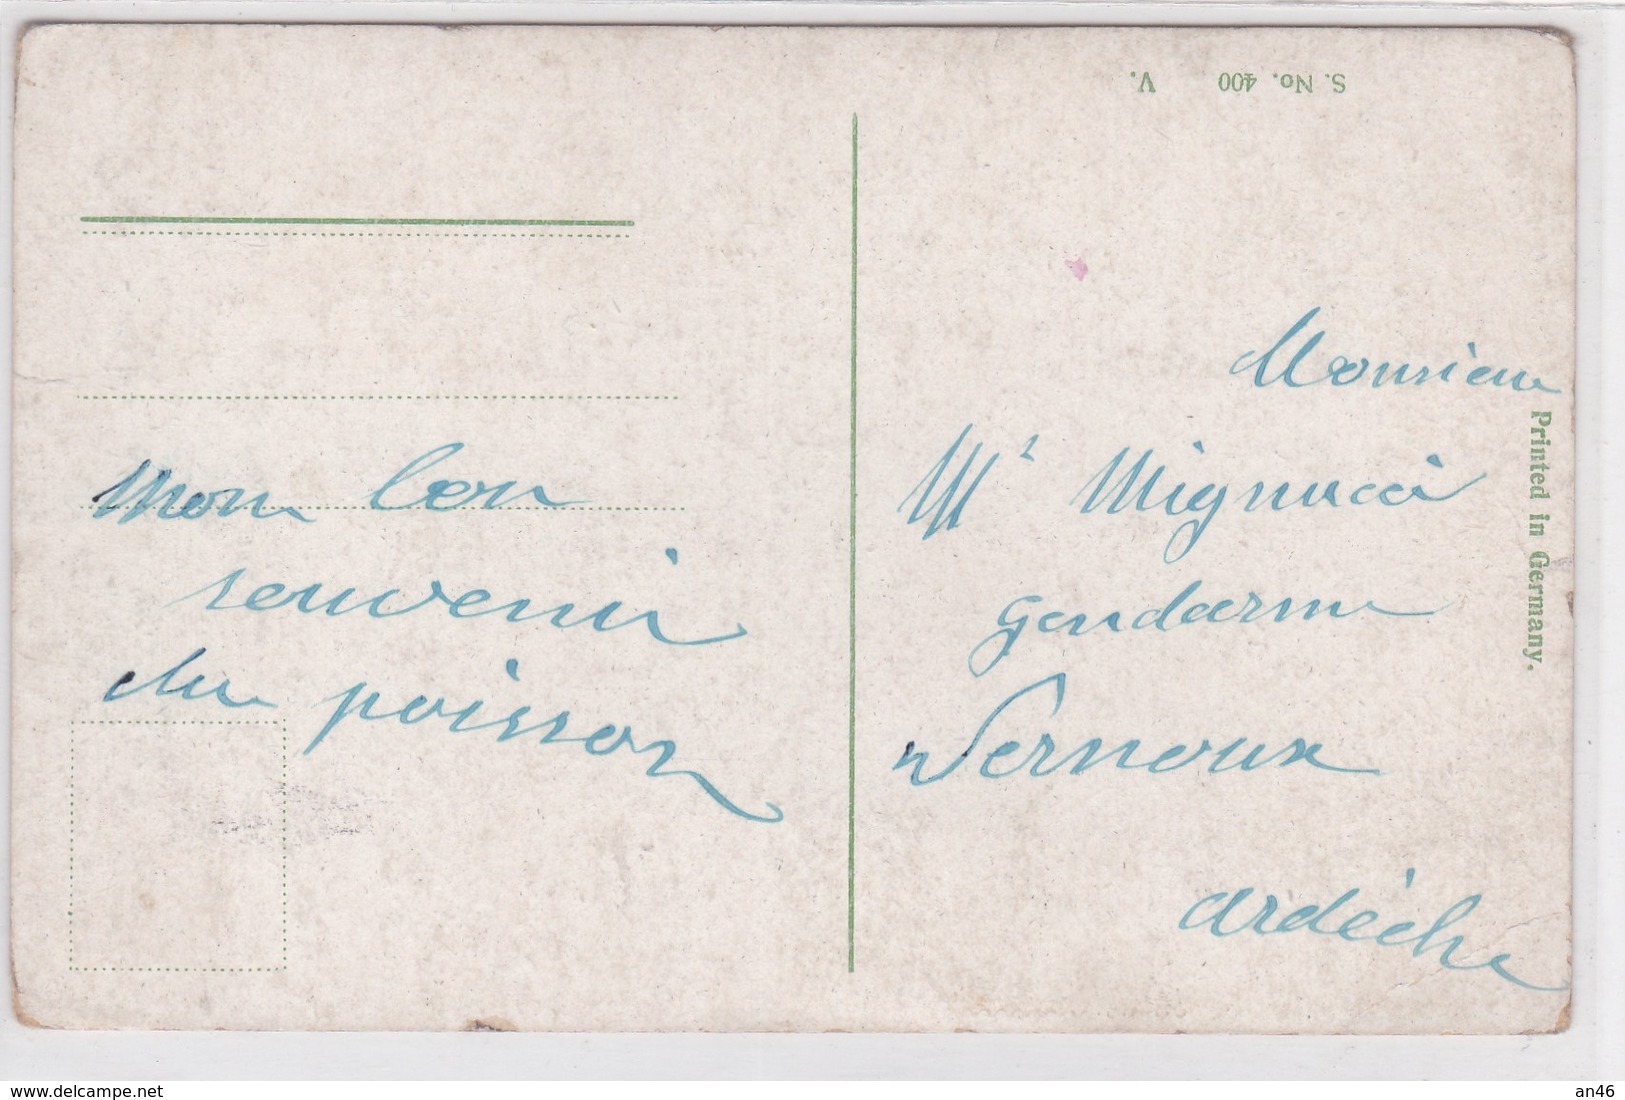 S. No. 400 V.
Mon bon
souvenir
du poisson
Monsieur
Mr Mignucci
gendarme
Vernoux
Ardèche
Printed in Germany.
delcampe.net
an46